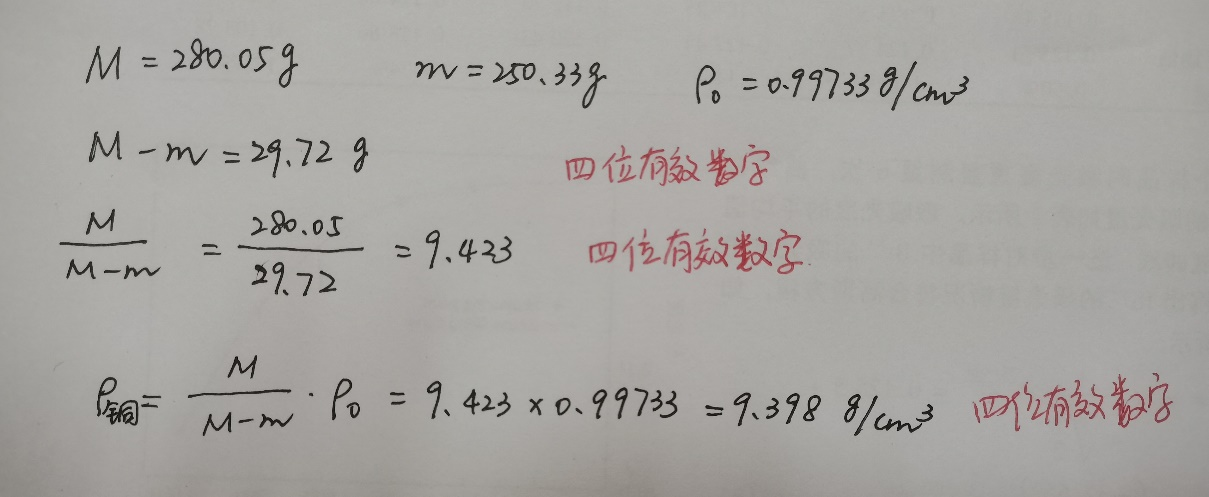 M = 280.05g m = 250.33g ρ₀ = 0.99733 g/cm³
M - m = 29.72 g 四位有效数字
M/(M-m) = 280.05/29.72 = 9.423 四位有效数字.
ρ铜 = M/(M-m) · ρ₀ = 9.423 × 0.99733 = 9.398 g/cm³ 四位有效数字